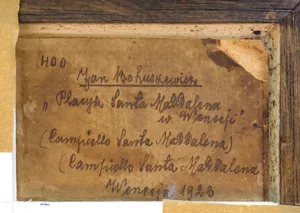 400
Jan Bohuszewicz
„Placyk Santa Maddalena
w Wenecji"
(Campiello Santa Maddalena)
(Campiello Santa Maddalena
Wenecja 1923